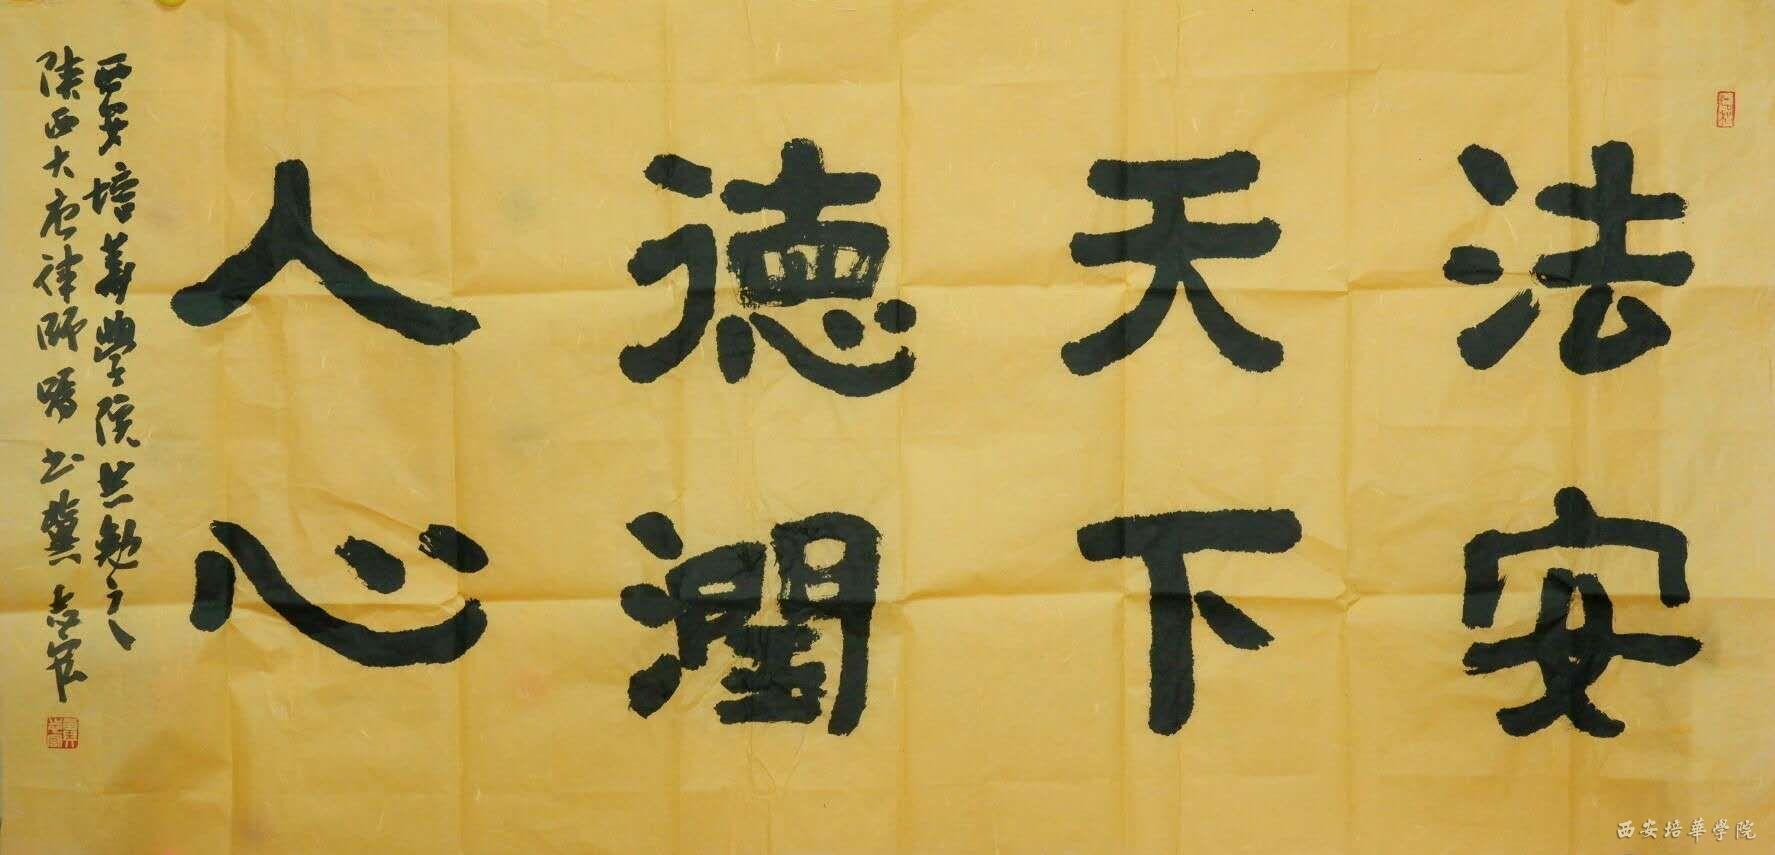 法安
天下
德潤
人心
西安培華學院共勉之
陕西大唐律師嘱书龚志宏
西安培華學院